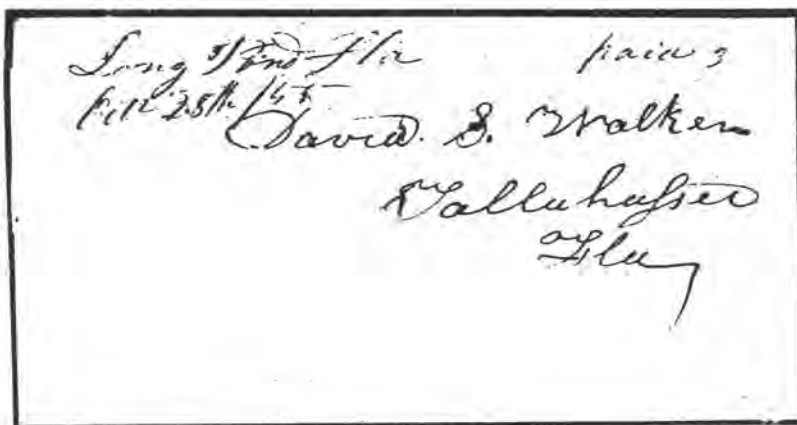 Long Pond Fla paid 3
Feb 28th /55
David. S. Walker
Tallahassee
Fla